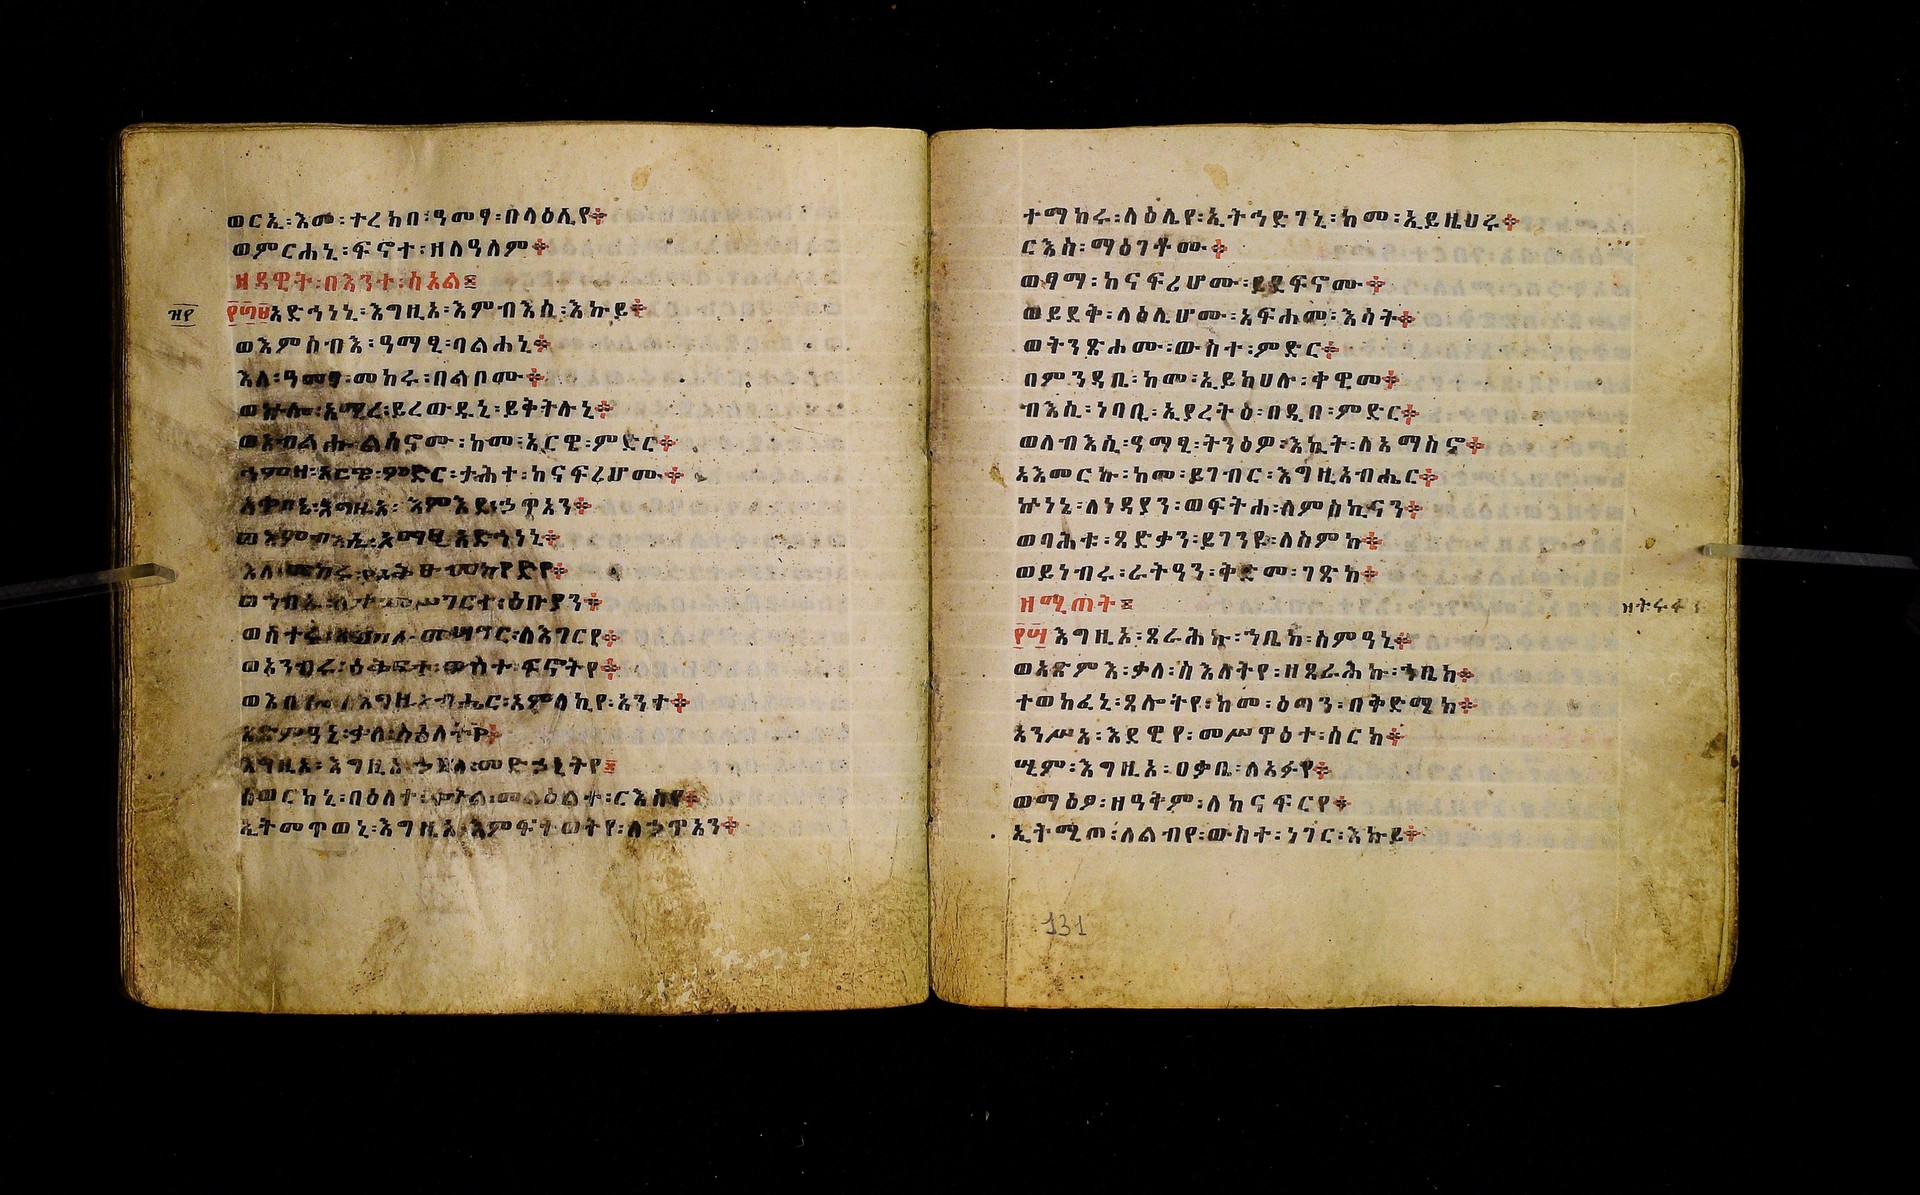 ወርኢ፡እመ፡ተረክበ፡ዓመፃ፡በላዕሌየ፨
ወምርሐኒ፡ፍኖተ፡ዘለዓለም፨
ዘዳዊት፡በእንተ፡ሳአል፨
፻፴፱አድኅነኒ፡እግዚአ፡እምብእሲ፡እኩይ፨
ወእምብእ፡ዓማፂ፡ባልሐኒ፨
እለ፡ዓመፃ፡መከሩ፡በልቦሙ፨
ወኵሎ፡አሚረ፡ይረውዱኒ፡ይቅትሉኒ፨
ወአብልሑ፡ልሳኖሙ፡ከመ፡አርዌ፡ምድር፨
ሕምዘ፡አርዌ፡ምድር፡ታሕተ፡ከናፍሪሆሙ፨
ዕቀበኒ፡እግዚአ፡እምእደ፡ኃጥአን፨
ወእምሰብእ፡ዓማፂ፡አድኅነኒ፨
እለ፡መከሩ፡ያዕቅፁ፡መከየድየ፨
ወኀብኡ፡ሊተ፡መሥገርተ፡ዕቡያን፨
ወሰተሩ፡አሕባለ፡መሣግር፡ለእገርየ፨
ወአንበሩ፡ዕቅፍተ፡ውስተ፡ፍኖትየ፨
ወእቤሎ፡ለእግዚአብሔር፡አምላኪየ፡አንተ፨
አፅምዓኒ፡ቃለ፡ስእለትየ፨
እግዚአ፡እግዚአ፡ኃይለ፡መድኃኒትየ፨
ሰወርከኒ፡በዕለተ፡ቀትል፡መልዕልተ፡ርእስየ፨
ኢትመጥወኒ፡እግዚአ፡እምፍትወትየ፡ለኃጥአን፨
ዝየ
ተማከሩ፡ላዕሌየ፡ኢትኅድገኒ፡ከመ፡ኢይዚሀሩ፨
ርእሰ፡ማዕገቶሙ፨
ወፃማ፡ከናፍሪሆሙ፡ይደፍኖሙ፨
ወይደቅ፡ላዕሌሆሙ፡አፍሐመ፡እሳት፨
ወትንጽሖሙ፡ውስተ፡ምድር፨
በምንዳቤ፡ከመ፡ኢይክሀሉ፡ቀዊመ፨
ብእሲ፡ነባቢ፡ኢያረትዕ፡በዲበ፡ምድር፨
ወለብእሲ፡ዓማፂ፡ትንዕዎ፡እኪት፡ለአማስኖ፨
አእመርኩ፡ከመ፡ይገብር፡እግዚአብሔር፨
ኵነኔ፡ለነዳያን፡ወፍትሐ፡ለምስኪናን፨
ወባሕቱ፡ጻድቃን፡ይገንዩ፡ለስምከ፨
ወይነብሩ፡ራትዓን፡ቅድመ፡ገጽከ፨
ዘሚጠት፨
፻፵እግዚአ፡ጸራሕኩ፡ኀቤከ፡ስምዓኒ፨
ወአጽምእ፡ቃለ፡ስእለትየ፡ዘጸራሕኩ፡ኀቤከ፨
ተወከፈኒ፡ጸሎትየ፡ከመ፡ዕጣን፡በቅድሜከ፨
አንሥአ፡እደዊየ፡መሥዋዕተ፡ሰርክ፨
ሢም፡እግዚአ፡ዐቃቤ፡ለአፉየ፨
ወማዕፆ፡ዘዓቅም፡ለከናፍርየ፨
ኢትሚጦ፡ለልብየ፡ውስተ፡ነገር፡እኩይ፨
131